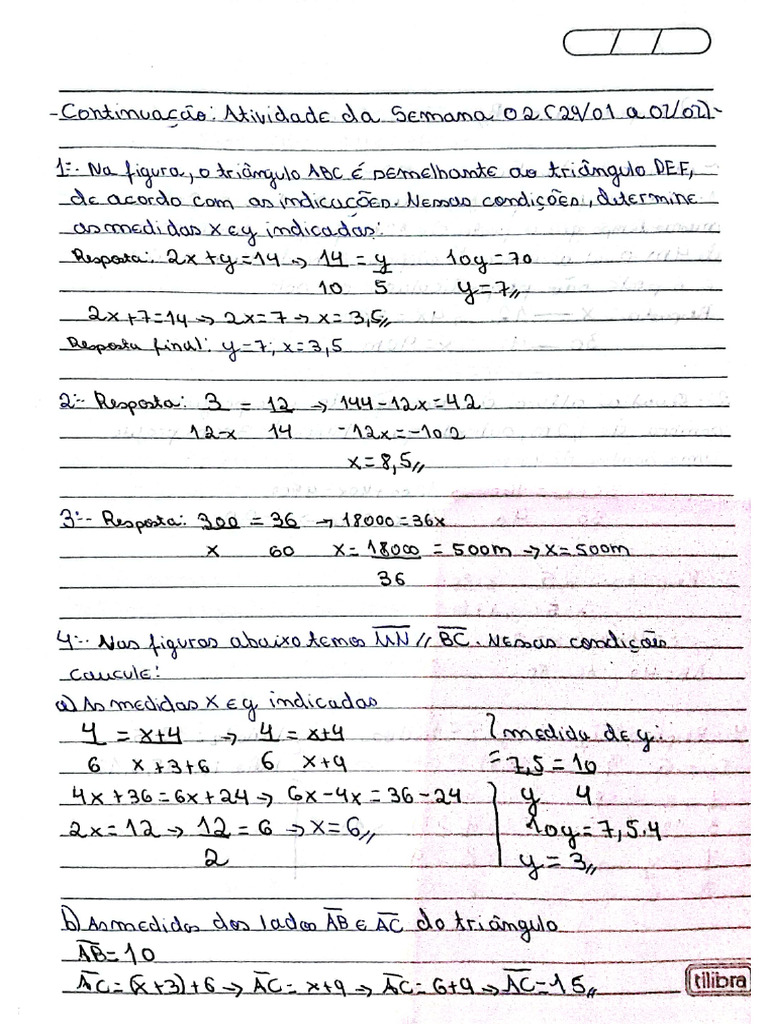 -Continuação: Atividade da Semana 02 (29/01 a 02/02)-
1:- Na figura, o triângulo ABC é semelhante ao triângulo DEF,
de acordo com as indicações. Nessas condições, determine
as medidas x e y indicadas:
Resposta: 2x+y=14 → 14 = y 10y=70
10 5 y=7//
2x+7=14 → 2x=7 → x=3,5//
Resposta final: y=7; x=3,5
2:- Resposta: 3 = 12 → 144-12x=42
12-x 14 -12x=-102
x=8,5//
3:- Resposta: 300 = 36 → 18000=36x
x 60 x=18000 = 500m → x=500m
36
4:- Nas figuras abaixo temos MN // BC. Nessas condições
caucule:
a) As medidas x e y indicadas
4 = x+4 → 4 = x+4 medida de y:
6 x+3+6 6 x+9 =7,5=10
4x+36=6x+24 → 6x-4x=36-24 y 4
2x=12 → 12=6 → x=6// 10y=7,5.4
2 y=3//
b) As medidas dos lados AB e AC do triângulo
AB=10
AC=(x+3)+6 → AC=x+9 → AC=6+9 → AC=15//
tilibra